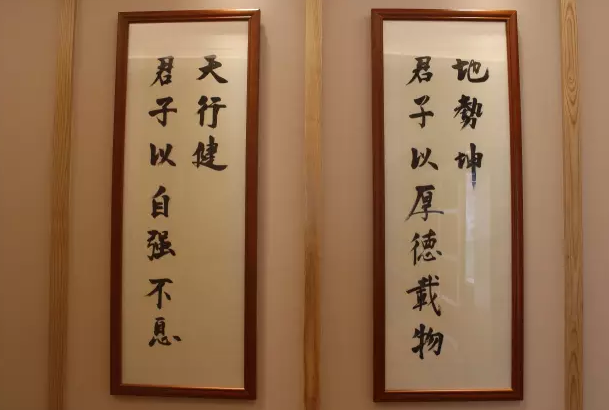 天行健
君子以自强不息
地勢坤
君子以厚德載物